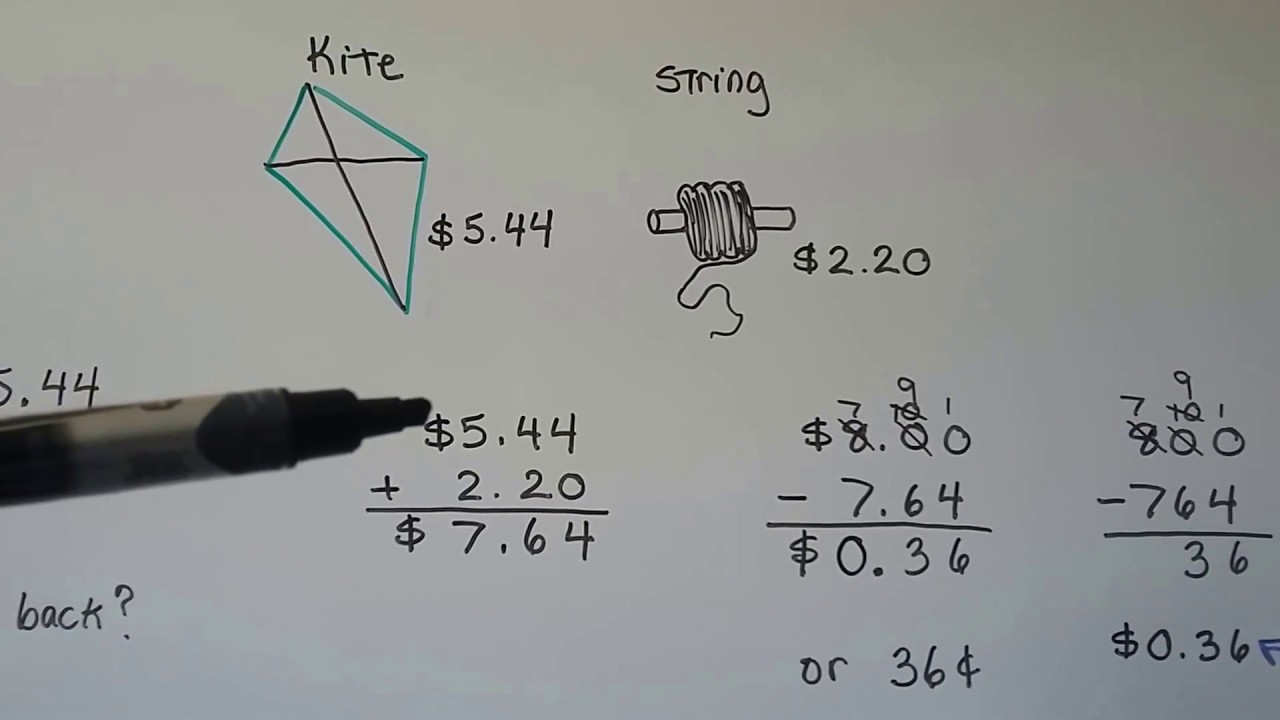 Kite
String
$5.44
$2.20
5.44
$5.44
+ 2.20
$ 7.64
back?
7 9 10 1
$8.00
- 7.64
$0.36
or 36¢
7 9 10 1
800
-764
36
$0.36